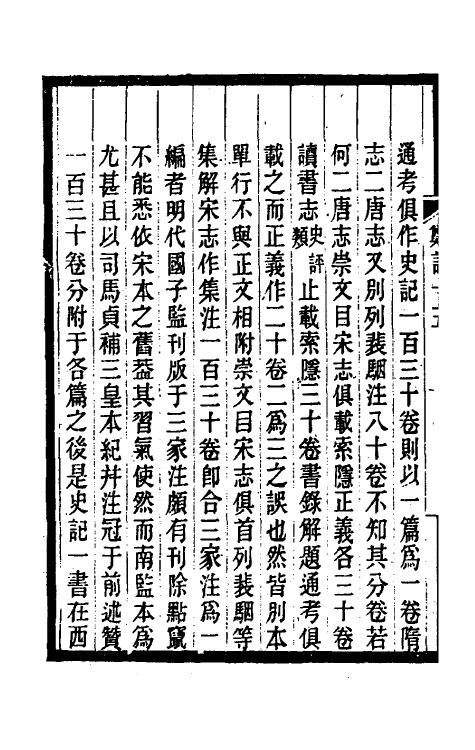 通考俱作史記一百三十卷則以一篇爲一卷隋
志二唐志又別列裴駰注八十卷不知其分卷若
何二唐志崇文目宋志俱載索隱正義各三十卷
讀書志史評類止載索隱三十卷書錄解題通考俱
載之而正義作二十卷二爲三之誤也然皆別本
單行不與正文相附崇文目宋志俱首列裴駰等
集解宋志作集注一百三十卷卽合三家注爲一
編者明代國子監刊版于三家注頗有刊除點竄
不能悉依宋本之舊葢其習氣使然而南監本爲
尤甚且以司馬貞補三皇本紀幷注冠于前述贊
一百三十卷分附于各篇之後是史記一書在西